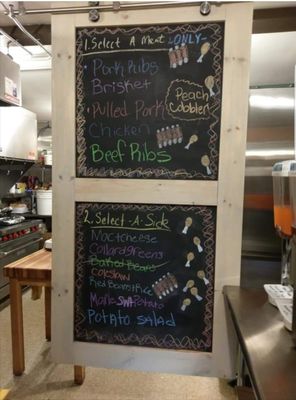 1. Select A Meat -ONLY-
• Pork Ribs
Brisket
• Pulled Pork
Chicken
Beef Ribs
Peach
Cobbler
2. Select-A-Side
Mac+cheese
Collard greens
Baked Beans
Coleslaw
Red Beans & Rice
Potato salad